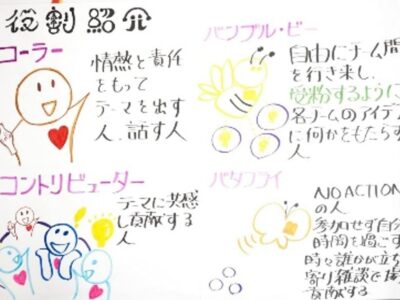 役割紹介
コーラー
情熱と責任
をもって
テーマを出す
人、話す人
バンブル・ビー
自由にチーム間
を行き来し、
受粉するように
各チームのアイデア
に何かをもたらす
人
コントリビューター
テーマに共感
し貢献する
人
バタフライ
NO ACTION
の人
参加せず自分
時間を過ごす
時々誰かが立ち
寄り雑談で場
貢献する